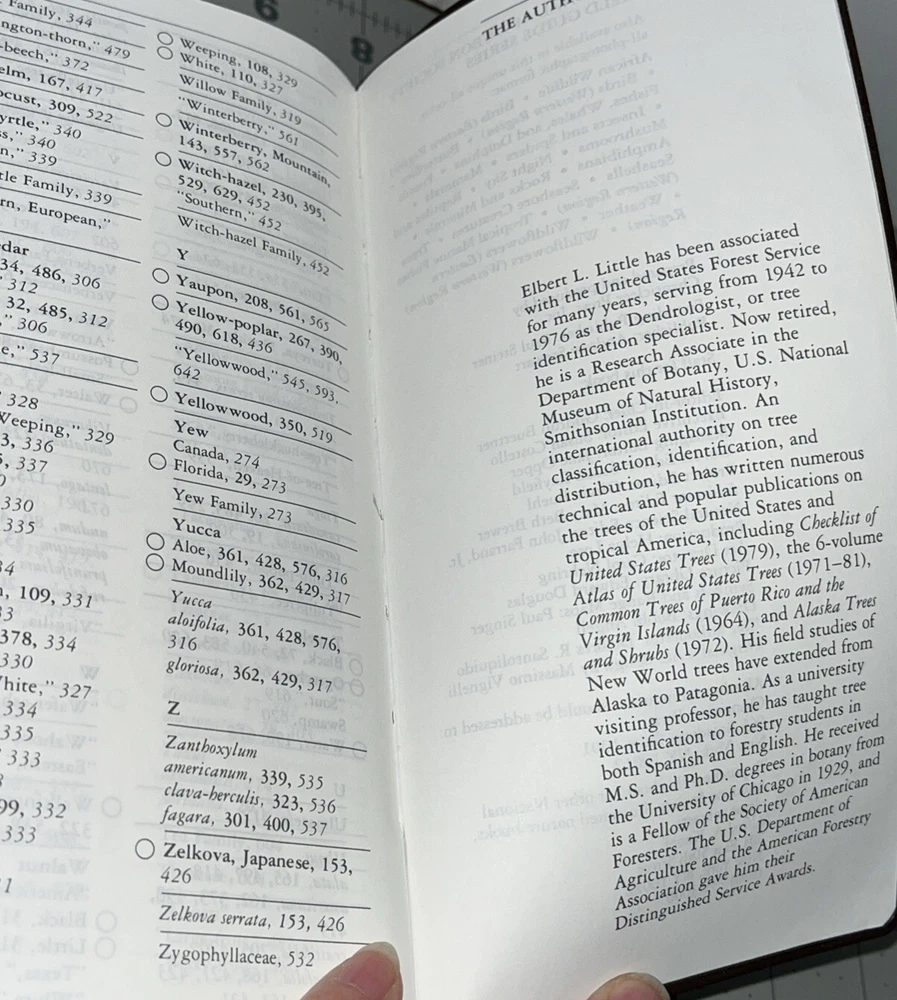 6
8
Family, 344
ngton-thorn," 479
-beech," 372
elm, 167, 417
ocust, 309, 522
yrtle," 340
ss," 340
n," 339
tle Family, 339
rn, European,"
dar
34, 486, 306
" 312
32, 485, 312
," 306
e," 537
328
Weeping," 329
3, 336
5, 337
330
335
34
n, 109, 331
33
378, 334
330
hite," 327
334
335
333
99, 332
333
1
Weeping, 108, 329
White, 110, 327
Willow Family, 319
"Winterberry," 561
Winterberry, Mountain,
143, 557, 562
Witch-hazel, 230, 395,
529, 629, 452
"Southern," 452
Witch-hazel Family, 452
Y
Yaupon, 208, 561, 565
Yellow-poplar, 267, 390,
490, 618, 436
"Yellowwood," 545, 593,
642
Yellowwood, 350, 519
Yew
Canada, 274
Florida, 29, 273
Yew Family, 273
Yucca
Aloe, 361, 428, 576, 316
Moundlily, 362, 429, 317
Yucca
aloifolia, 361, 428, 576,
316
gloriosa, 362, 429, 317
Z
Zanthoxylum
americanum, 339, 535
clava-herculis, 323, 536
fagara, 301, 400, 537
Zelkova, Japanese, 153,
426
Zelkova serrata, 153, 426
Zygophyllaceae, 532
THE AUTH
Elbert L. Little has been associated
with the United States Forest Service
for many years, serving from 1942 to
1976 as the Dendrologist, or tree
identification specialist. Now retired,
he is a Research Associate in the
Department of Botany, U.S. National
Museum of Natural History,
Smithsonian Institution. An
international authority on tree
classification, identification, and
distribution, he has written numerous
technical and popular publications on
the trees of the United States and
tropical America, including Checklist of
United States Trees (1979), the 6-volume
Atlas of United States Trees (1971–81),
Common Trees of Puerto Rico and the
Virgin Islands (1964), and Alaska Trees
and Shrubs (1972). His field studies of
New World trees have extended from
Alaska to Patagonia. As a university
visiting professor, he has taught tree
identification to forestry students in
both Spanish and English. He received
M.S. and Ph.D. degrees in botany from
the University of Chicago in 1929, and
is a Fellow of the Society of American
Foresters. The U.S. Department of
Agriculture and the American Forestry
Association gave him their
Distinguished Service Awards.